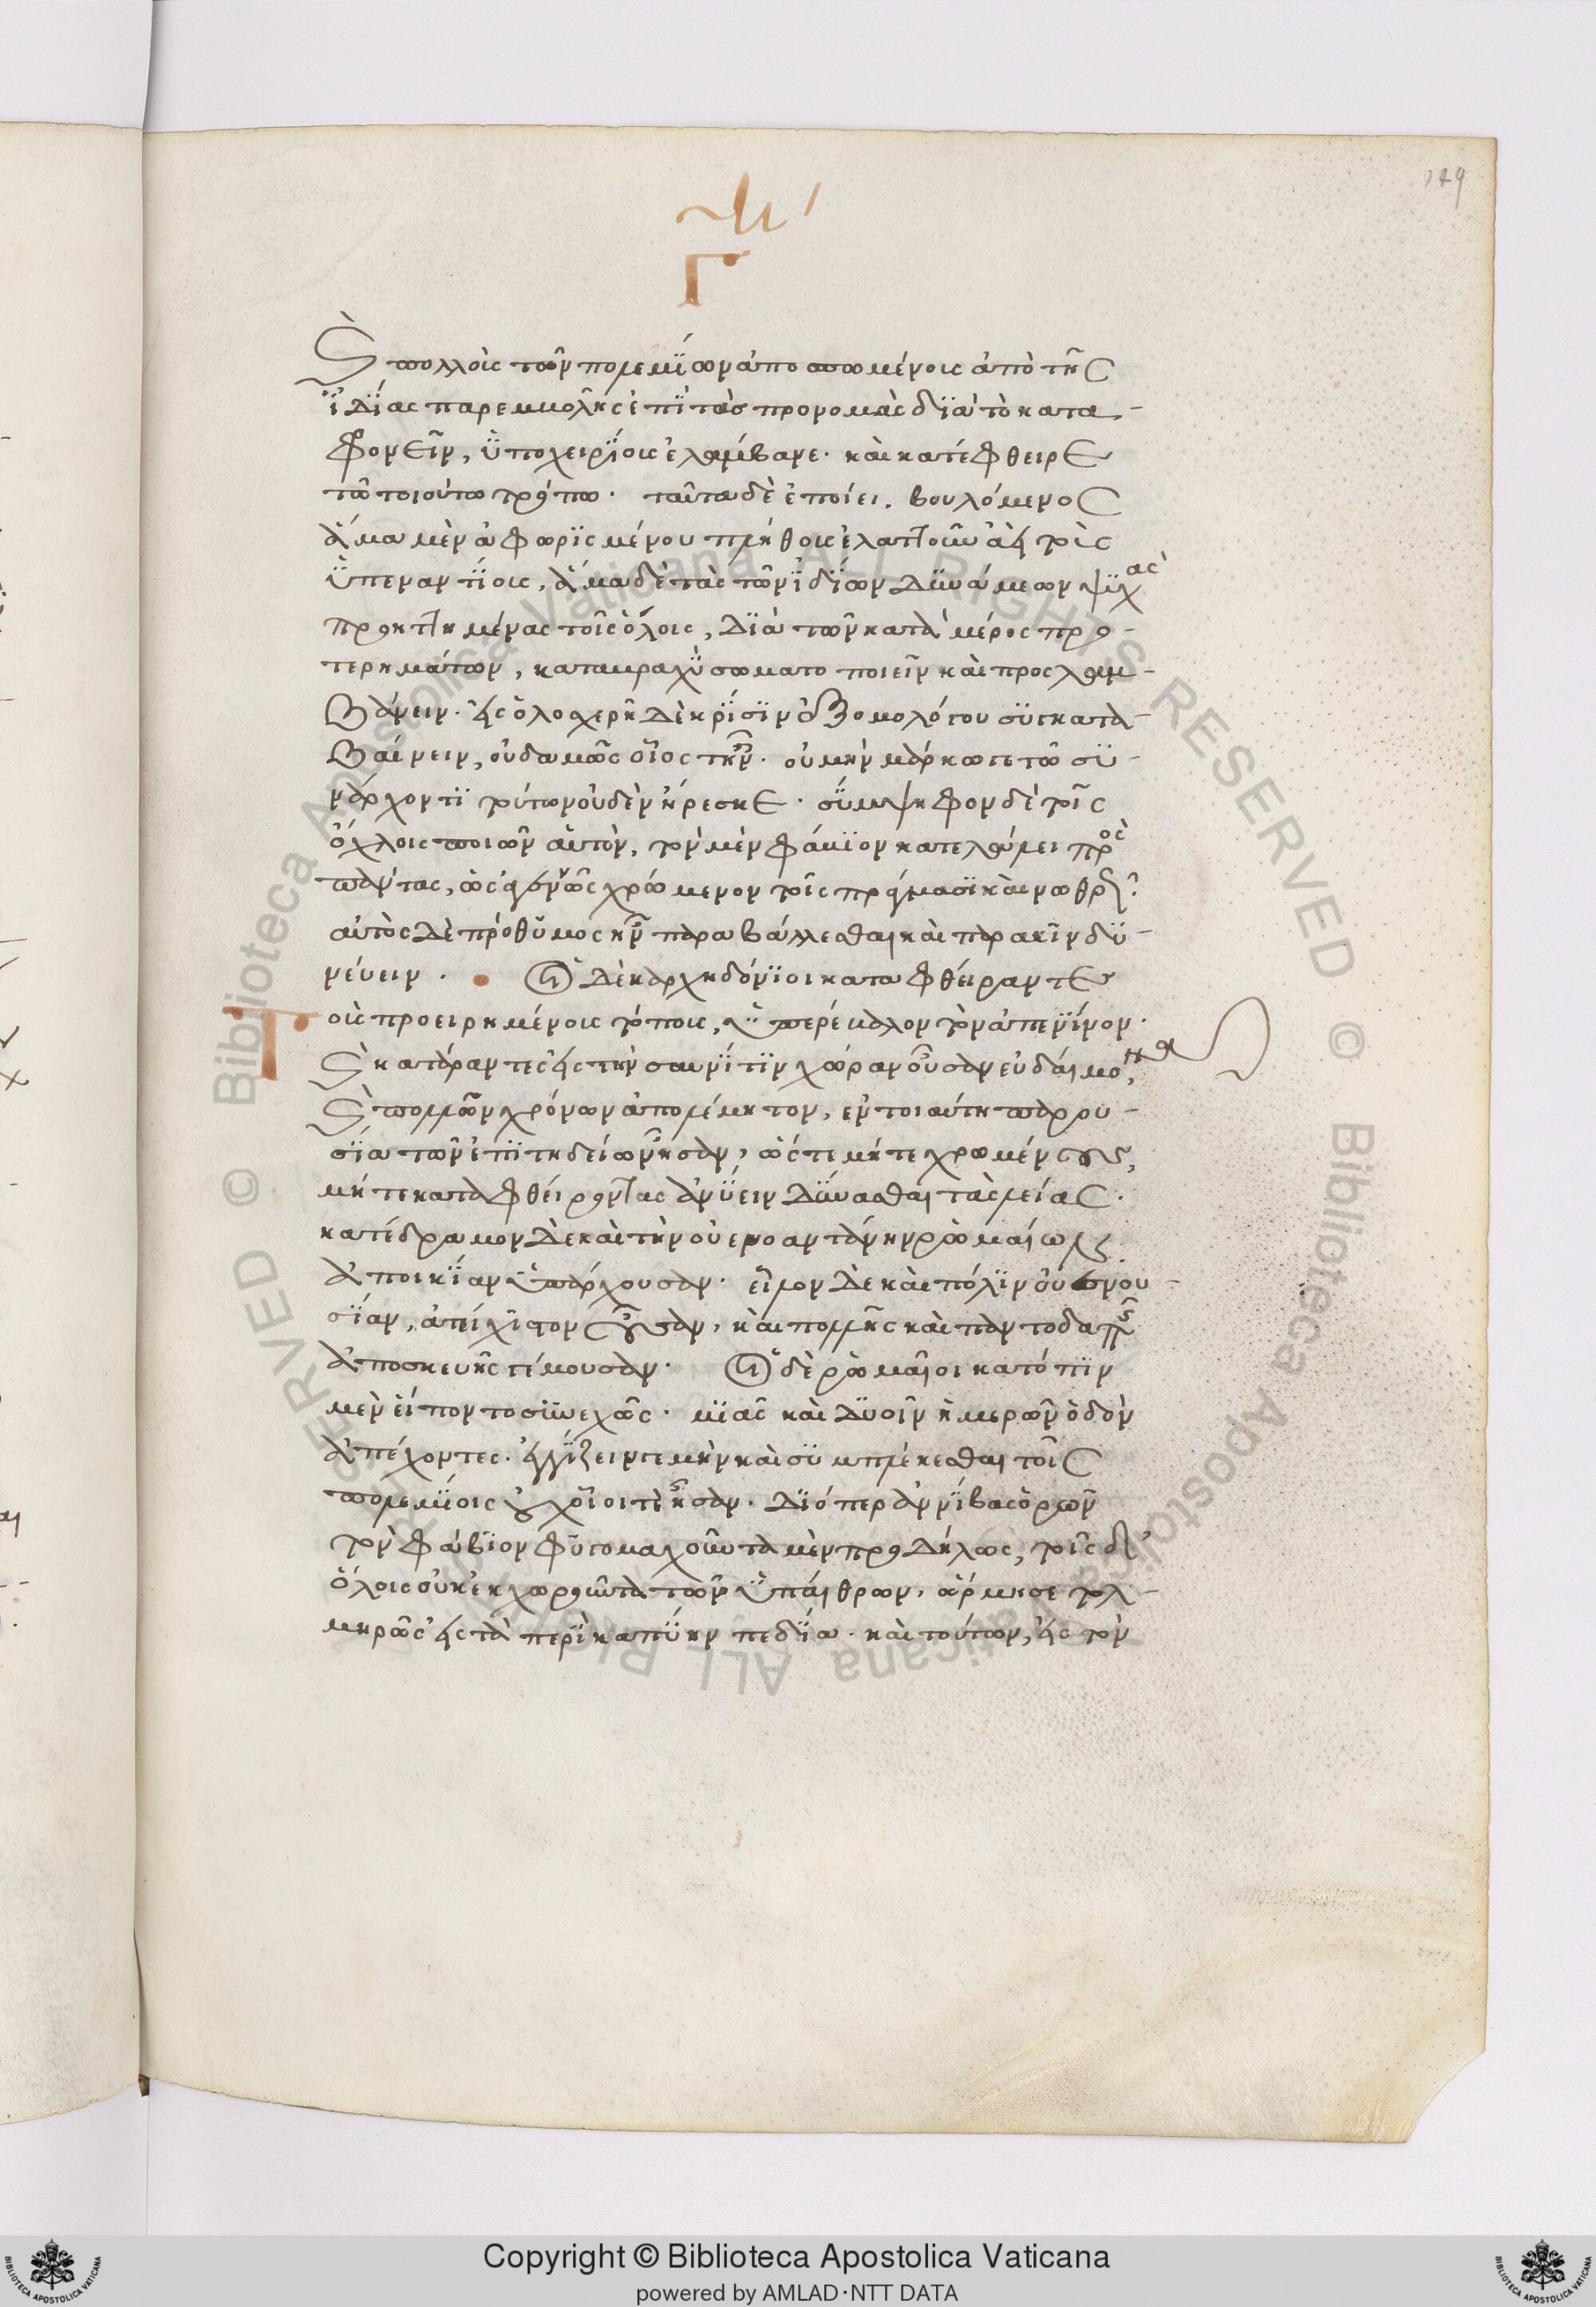 129
Γ
καὶ πολλοὺς τῶν πολεμίων ἀποσπωμένους ἀπὸ τῆς
ἰδίας παρεμβολῆς ἐπὶ τὰς προνομὰς διὰ τὸ κατα-
φρονεῖν, ὑποχειρίους ἐλάμβανε. καὶ κατέφθειρε
τῶ τοιούτω τρόπω. ταῦτα δὲ ἐποίει. βουλόμενος
ἅμα μὲν ἀφωρισμένου πλήθους ἐλαττοῦν ἀεὶ τοὺς
ὑπεναντίους, ἅμα δὲ τὰς τῶν ἰδίων δυνάμεων ψυχὰς
προηττημένας τοῖς ὅλοις, διὰ τῶν κατὰ μέρος προ-
τερημάτων, κατὰ βραχὺ σωματοποιεῖν καὶ προσλαμ-
βάνειν. εἰς ὁλοσχερῆ δὲ κρίσιν ἐξ ὁμολόγου συγκατα-
βαίνειν, οὐδαμῶς οἷός τ' ἦν. οὐ μὴν Μάρκω γε τῶ συ-
νάρχοντι τούτων οὐδὲν ἤρεσκε. σύμψηφον δὲ τοῖς
ὄχλοις ποιῶν αὑτὸν, τὸν μὲν φάβιον κατελάλει πρὸς
πάντας, ὡς ἀγεννῶς χρώμενον τοῖς πράγμασι καὶ νωθρῶς.
αὐτὸς δὲ πρόθυμος ἦν παραβάλλεσθαι καὶ παρακινδυ-
νεύειν. Οἱ δὲ καρχηδόνιοι καταφθείραντε
τοὺς προειρημένους τόπους, ὑπερέβαλον τὸν ἀπεννίνον.
καὶ κατάραντες εἰς τὴν σαυνίτιν χώραν οὖσαν εὐδαίμονα
καὶ πολλῶν χρόνων ἀπολέμητον, ἐν τοιαύτη παρου-
σία τῶν ἐπιτηδείων ἦσαν, ὥστε μήτε χρωμένους,
μήτε καταφθείροντας ἀνύειν δύνασθαι τὰς λείας.
κατέδραμον δὲ καὶ τὴν οὐενοαντάνην ρωμαίων
ἀποικίαν ὑπάρχουσαν. εἷλον δὲ καὶ πόλιν οὐενου-
σίαν, ἀτείχιστον οὖσαν, καὶ πολλῆς καὶ παντοδαπῆς
ἀποσκευῆς γέμουσαν. Οἱ δὲ ρωμαῖοι κατόπιν
μὲν εἵποντο συνεχῶς. μιᾶς καὶ δυοῖν ἡμερῶν ὁδὸν
ἀπέχοντες. ἐγγίζειν γε μὴν καὶ συμπλέκεσθαι τοῖς
πολεμίοις οὐχ οἷοί τε ἦσαν. διόπερ ἀννίβας ὁρῶν
τὸν φάβιον φυγομαχοῦντα μὲν προδήλως, τοῖς δ'
ὅλοις οὐκ ἐκχωροῦντα τῶν ὑπαίθρων, ὥρμησε τολ-
μηρῶς εἰς τὰ περὶ καπύην πεδία. καὶ τούτων, εἰς τὸν